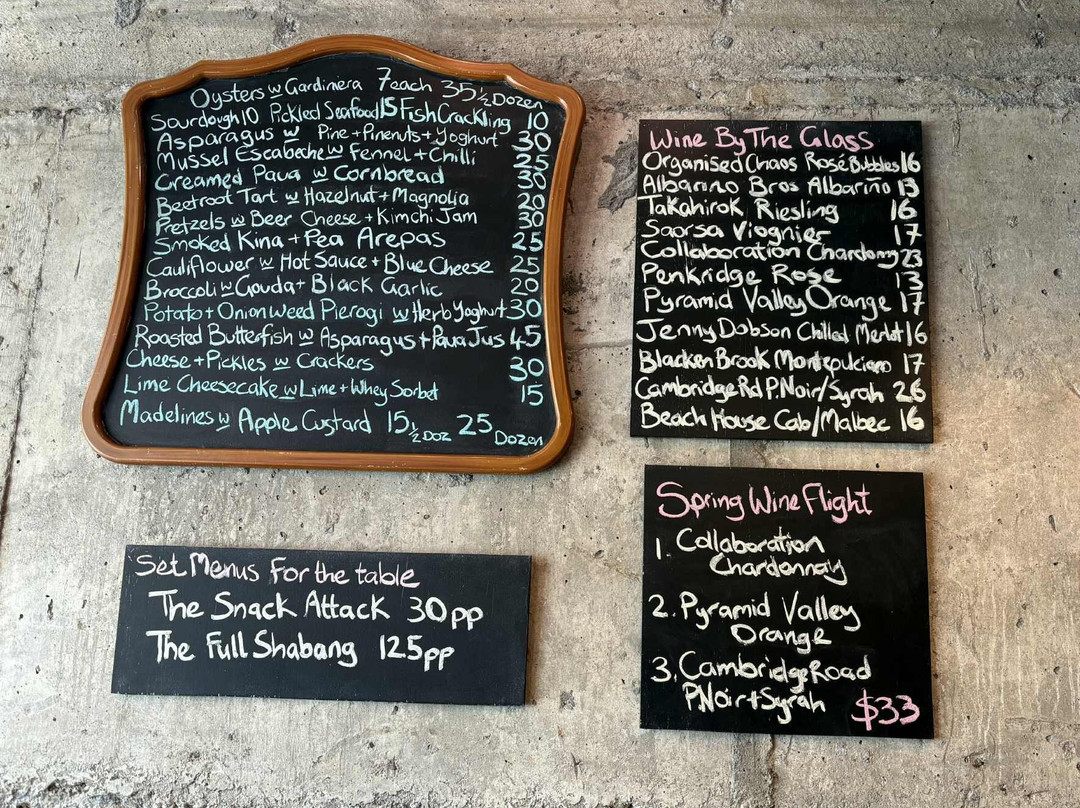 Oysters w Gardiniera 7each 35 ½ Dozen
Sourdough 10 Pickled Seafood 15 Fish Crackling 10
Asparagus w Pine+Pinenuts+Yoghurt 30
Mussel Escabeche w Fennel+Chilli 25
Creamed Paua w Cornbread 30
Beetroot Tart w Hazelnut+Magnolia 20
Pretzels w Beer Cheese+Kimchi Jam 30
Smoked Kina+Pea Arepas 25
Cauliflower w Hot Sauce+Blue Cheese 25
Broccoli w Gouda+Black Garlic 20
Potato+Onionweed Pierogi w Herb Yoghurt 30
Roasted Butterfish w Asparagus+Paua Jus 45
Cheese+Pickles w Crackers 30
Lime Cheesecake w Lime+Whey Sorbet 15
Madelines w Apple Custard 15 ½ Doz 25 Dozen
Set Menus For the table
The Snack Attack 30pp
The Full Shabang 125pp
Wine By The Glass
Organised Chaos Rosé Bubbles 16
Albarino Bros Albariño 13
Takahirok Riesling 16
Saorsa Viognier 17
Collaboration Chardonnay 23
Penkridge Rose 13
Pyramid Valley Orange 17
Jenny Dobson Chilled Merlot 16
Blacken Brook Montepulciano 17
Cambridge Rd P.Noir/Syrah 26
Beach House Cab/Malbec 16
Spring Wine Flight
1. Collaboration
Chardonnay
2. Pyramid Valley
Orange
3. Cambridge Road
P.Noir+Syrah $33